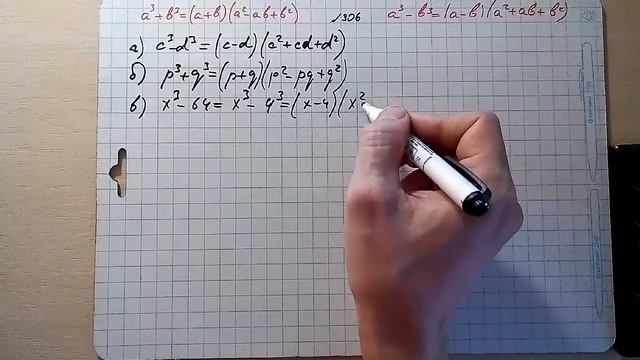 a³+b³=(a+b)(a²-ab+b²) №306 a³-b³=(a-b)(a²+ab+b²)
а) c³-d³=(c-d)(c²+cd+d²)
б) p³+q³=(p+q)(p²-pq+q²)
в) x³-64=x³-4³=(x-4)(x²